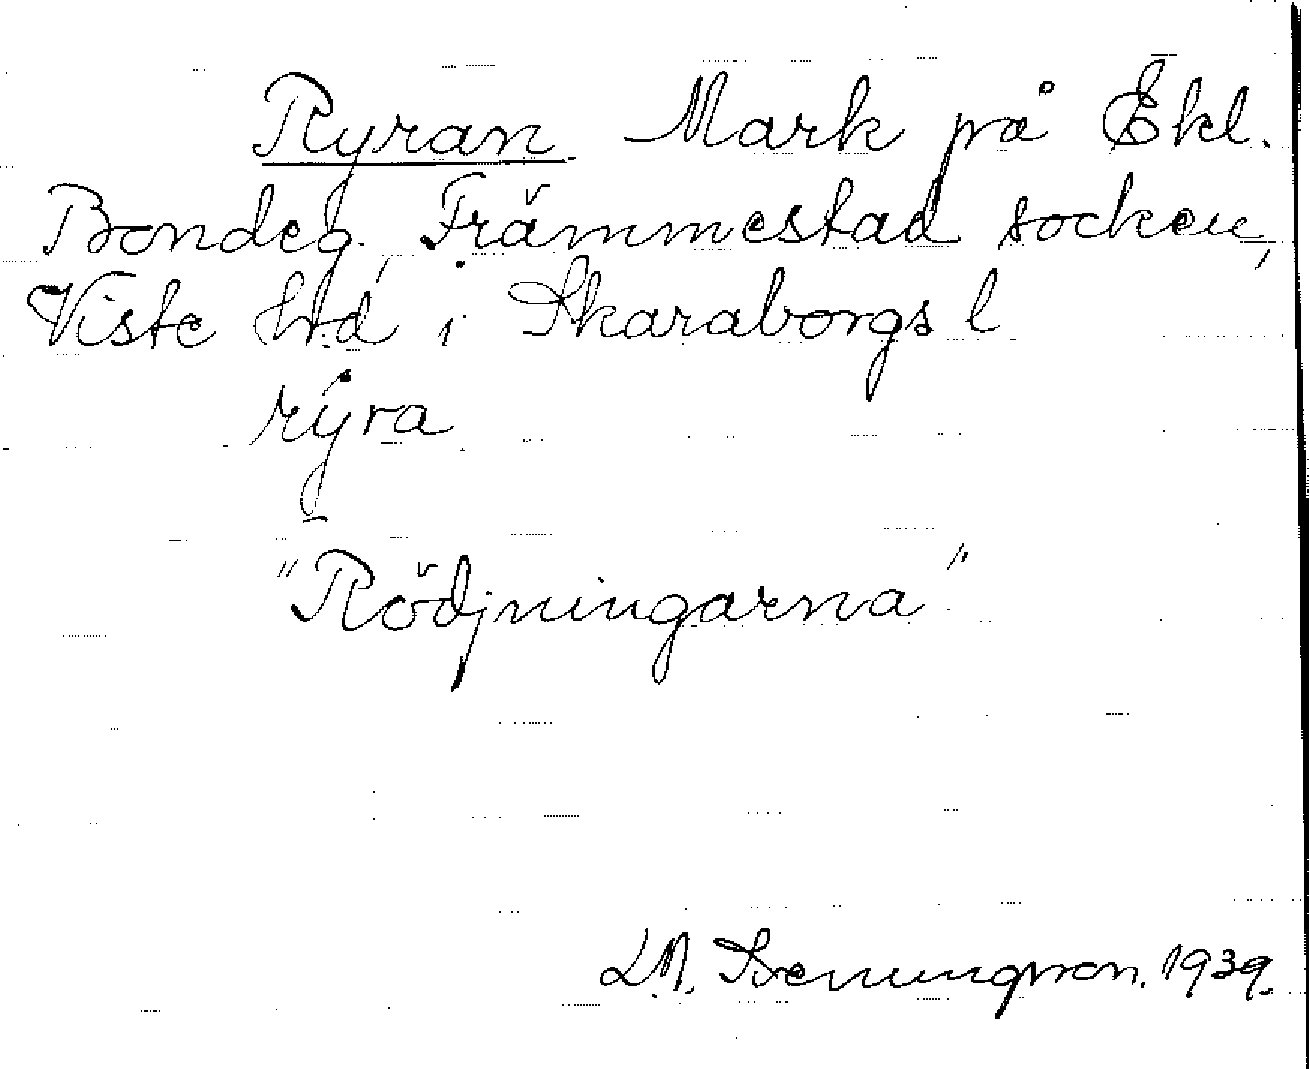 Ryran Mark på Ekl.
Bondeg. Främmestad socken,
Viste hd i Skaraborgs l
rýra
"Rödjningarna"
L.M. Svenungsson. 1939.